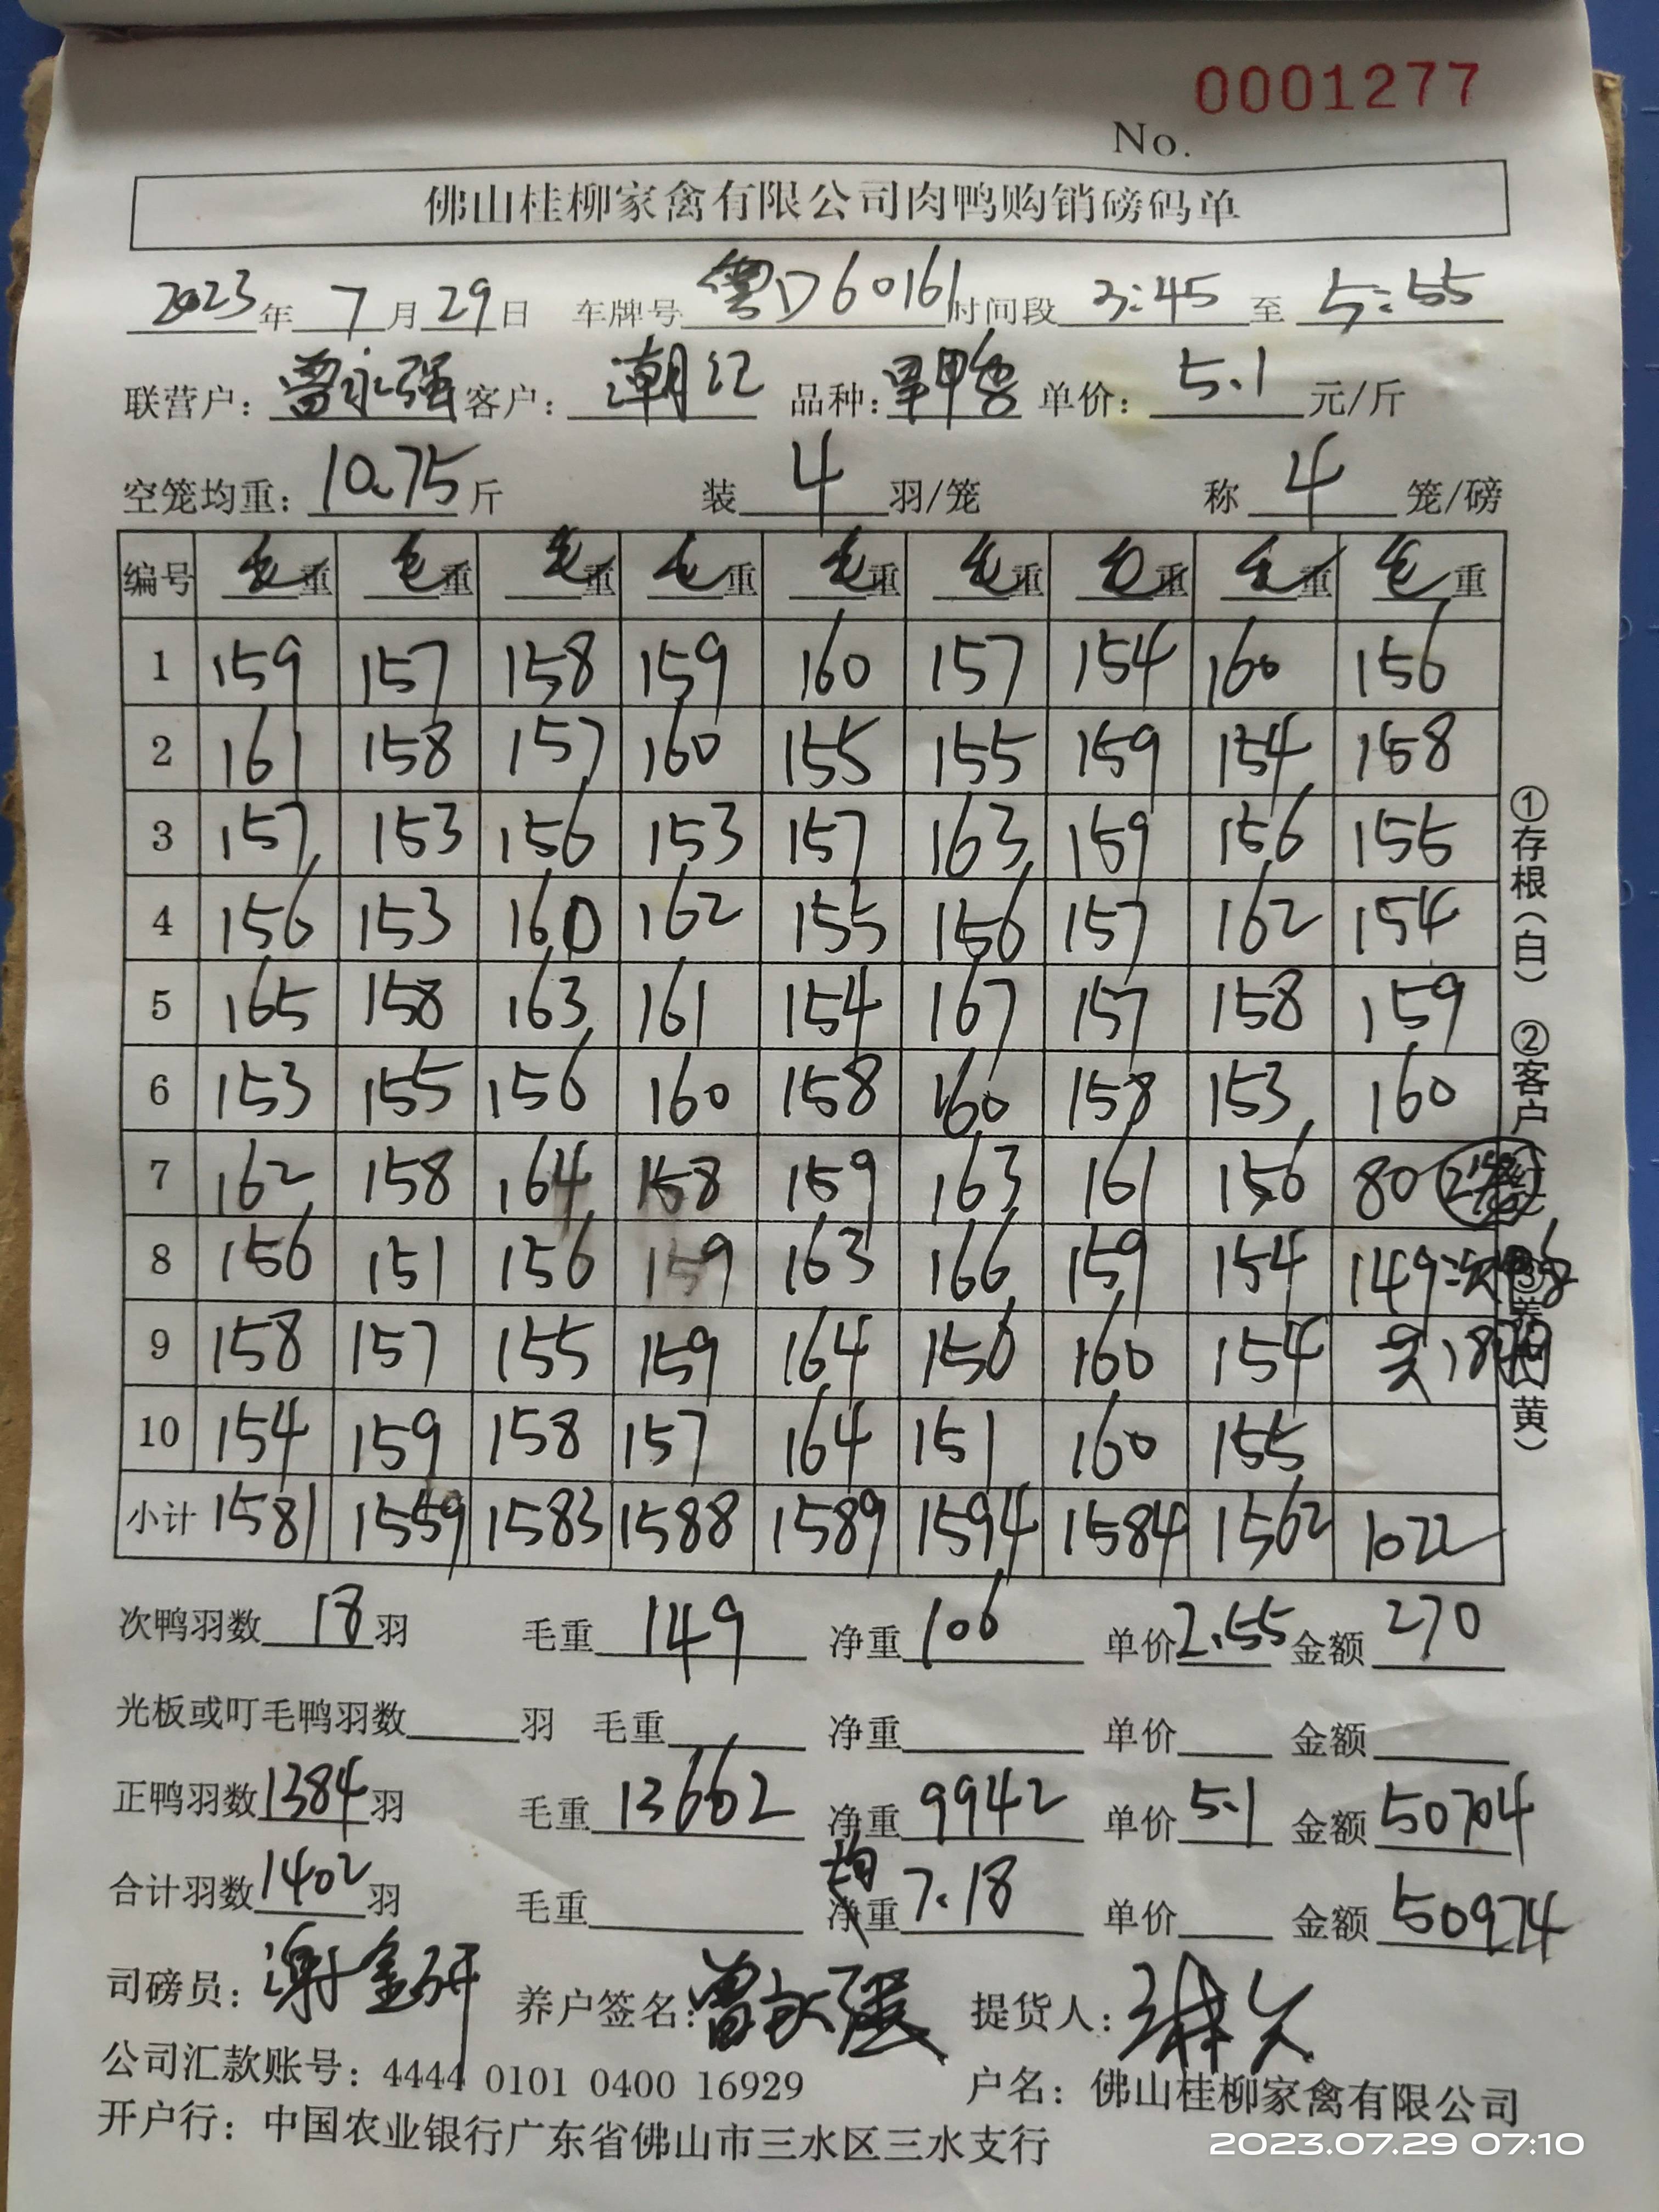 0001277
No.
佛山桂柳家禽有限公司肉鸭购销磅码单
2023年 7月29日 车牌号 粤D60161 时间段 3:45 至 5:55
联营户：曾永强 客户：潮记 品种： 单价：5.1 元/斤
空笼均重：10.75斤 装 4 羽/笼 称 4 笼/磅
编号 毛重 毛重 毛重 毛重 毛重 毛重 毛重 毛重 毛重
1 159 157 158 159 160 157 154 160 156
2 161 158 157 160 155 155 159 154 158
3 157 153 156 153 157 163 159 156 155
4 156 153 160 162 155 156 157 162 154
5 165 158 163 161 154 167 157 158 159
6 153 155 156 160 158 160 158 153 160
7 162 158 164 158 159 163 161 156 80
8 156 151 156 159 163 166 159 154 149
9 158 157 155 159 164 156 160 154
10 154 159 158 157 164 151 160 155
小计 1581 1559 1583 1588 1589 1594 1584 1562 1022
①存根(白) ②客户 黄)
次鸭羽数 18 羽 毛重 149 净重 106 单价 2.55 金额 270
光板或叮毛鸭羽数 羽 毛重 净重 单价 金额
正鸭羽数 1384 羽 毛重 13662 净重 9942 单价 5.1 金额 50704
合计羽数 1402 羽 毛重 均重 7.18 单价 金额 50974
司磅员：谢金研 养户签名：曾永强 提货人：
公司汇款账号：4444 0101 0400 16929 户名：佛山桂柳家禽有限公司
开户行：中国农业银行广东省佛山市三水区三水支行
2023.07.29 07:10